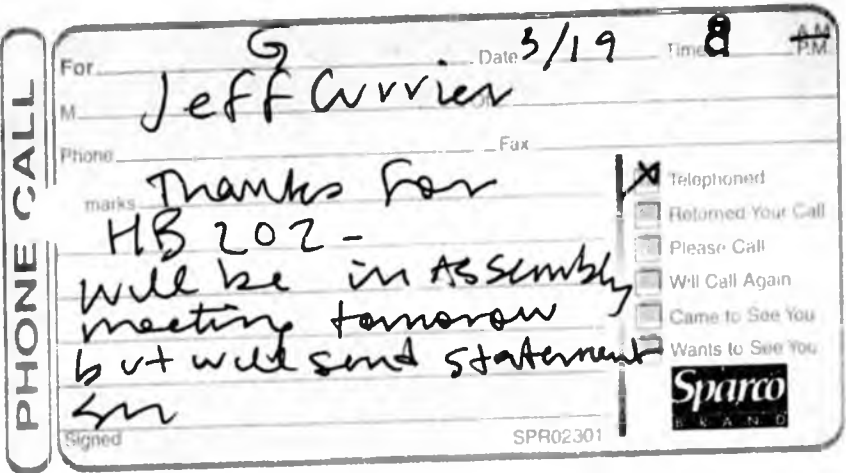 PHONE CALL
For G Date 3/19 Time 8 A.M.
P.M.
M Jeff Currier Of
Phone Fax
marks Thanks For
HB 202 -
will be in Assembly
meeting tomorow
but will send statement
Signed
Telephoned
Returned Your Call
Please Call
Will Call Again
Came to See You
Wants to See You
Sparco
BRAND
SPR02301